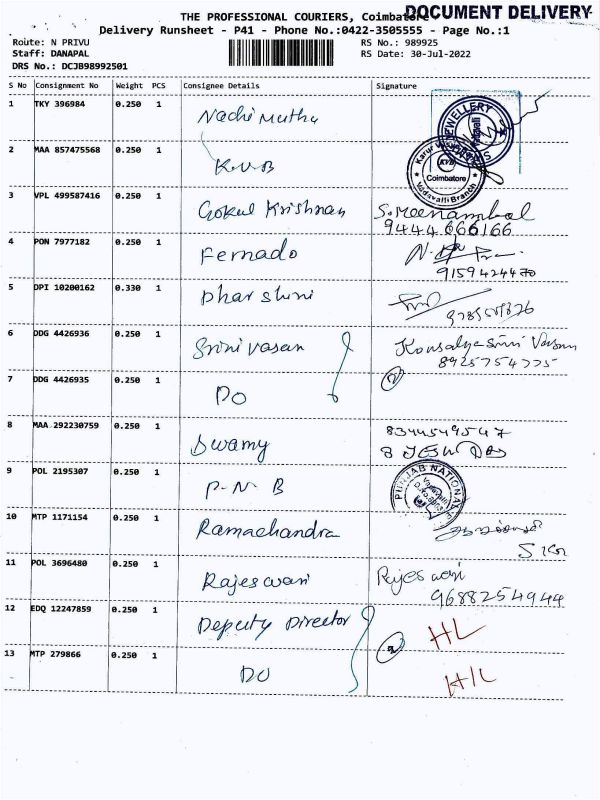 THE PROFESSIONAL COURIERS, Coimbatore
DOCUMENT DELIVERY
Delivery Runsheet - P41 - Phone No.:0422-3505555 - Page No.:1
Route: N PRIVU
RS No.: 989925
Staff: DANAPAL
RS Date: 30-Jul-2022
DRS No.: DCJB98992501
S No Consignment No Weight PCS Consignee Details Signature
1 TKY 396984 0.250 1 Nachimuthu
JEWELLERY
2 MAA 857475568 0.250 1 K.V.B
Karur
KVB
Coimbatore
Vadavalli Branch
3 VPL 499587416 0.250 1 Gokul Krishnan S.Meenambal
9444666166
4 PON 7977182 0.250 1 Fernado
9159424470
5 DPI 10200162 0.330 1 Dharshini
6 DDG 4426936 0.250 1 Srinivasan Kousalya Srini Vasan
8925754775
7 DDG 4426935 0.250 1 DO 2
8 MAA 292230759 0.250 1 Swamy 8344549547
9 POL 2195307 0.250 1 P.N.B
PUNJAB NATIONAL
10 MTP 1171154 0.250 1 Ramachandra
11 POL 3696480 0.250 1 Rajeswari Rajeswari
9688254944
12 EDQ 12247859 0.250 1 Deputy Director HL
2
13 MTP 279866 0.250 1 DO H/L